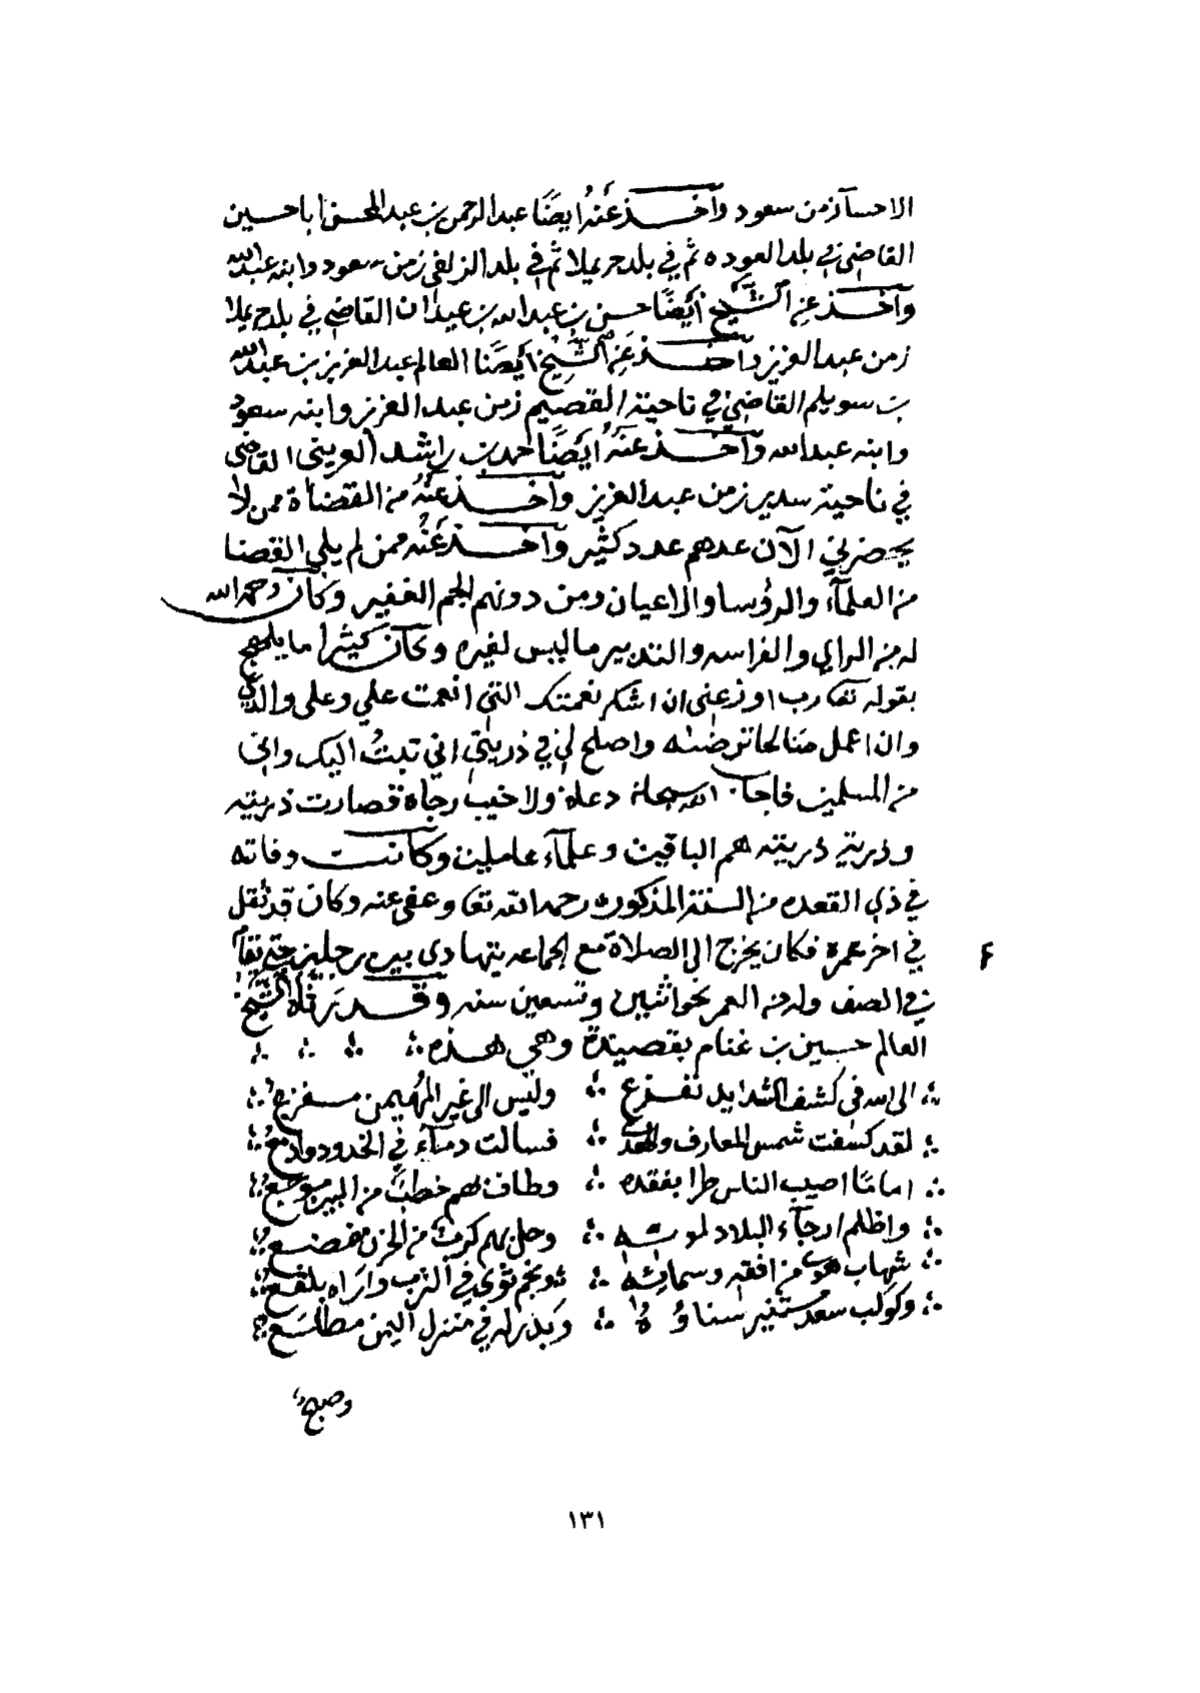 الاحسآ زمن سعود وآخذ عنه ايضًا عبدالرحمن بن عبدالمحسن اباحسين
القاضي في بلد العوده ثم في بلد حريملا ثم في بلد الزلفي زمن سعود وابنه عبدالله
وآخذ عن الشيخ ايضًا حسن بن عبدالله بن عيدان القاضي في بلد حريملا
زمن عبدالعزيز واخذ عن الشيخ ايضًا العالم عبدالعزيز بن عبدالله
بن سويلم القاضي في ناحية القصيم زمن عبدالعزيز وابنه سعود
وابنه عبدالله وآخذ عنه ايضًا حمد بن راشد العريني القاضي
في ناحية سدير زمن عبدالعزيز وآخذ عنه من القضاة ممن لا
يحضرني الآن عدهم عدد كثير وآخذ عنه ممن لم يلي القضا
من العلمآء والرؤسا والاعيان ومن دونهم الجم الغفير وكان رحمه الله
له من الراي والفراسه والتدبير ما ليس لغيره وكان كثيرا ما يلهج
بقوله تعا رب اوزعني ان اشكر نعمتك التي انعمت علي وعلى والدي
وان اعمل صالحا ترضىه واصلح لي في ذريتي اني تبت اليك واني
من المسلمين فاجاب الله سبحانه دعاه ولا خيب رجاه فصارت ذريته
وذرية ذريته هم الباقين وعلمآء عاملين وكانت وفاته
في ذي القعده من السنة المذكوره رحمه الله تعا وعفى عنه وكان قد ثقل
في اخر عمره فكان يخرج الى الصلاة مع الجماعه يتهادى بين رجلين حتى يقام
في الصف وله من العمر نحو اثنين وتسعين سنه وقد رثاه الشيخ
العالم حسين بن غنام بقصيدة وهي هذه
الى الله في كشف الشدايد نفزع ∴ وليس الى غير المهيمن مفزع
لقد كسفت شمس المعارف والهدى ∴ فسالت دمآء في الخدود وادمع
امامًا اصيب الناس طرا بفقده ∴ وطاف بهم خطب من البين موجع
واظلم ارجآء البلاد لموته ∴ وحل بهم كرب من الحزن مفضع
شهاب هوى من افقه وسمائه ∴ ونجم ثوى في الترب واراه بلقع
وكوكب سعد مستنير سناؤه ∴ وبدر له في منزل اليمن مطلع
وصبح
١٣١